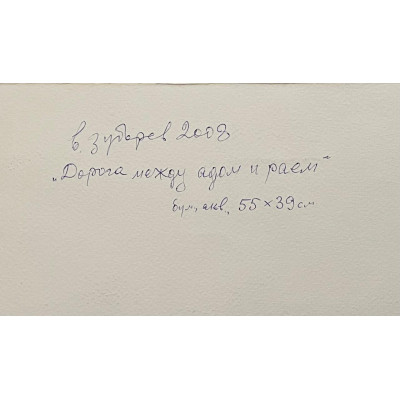 В. Зубарев 2008
„Дорога между адом и раем"
бум, акв, 55×39 см